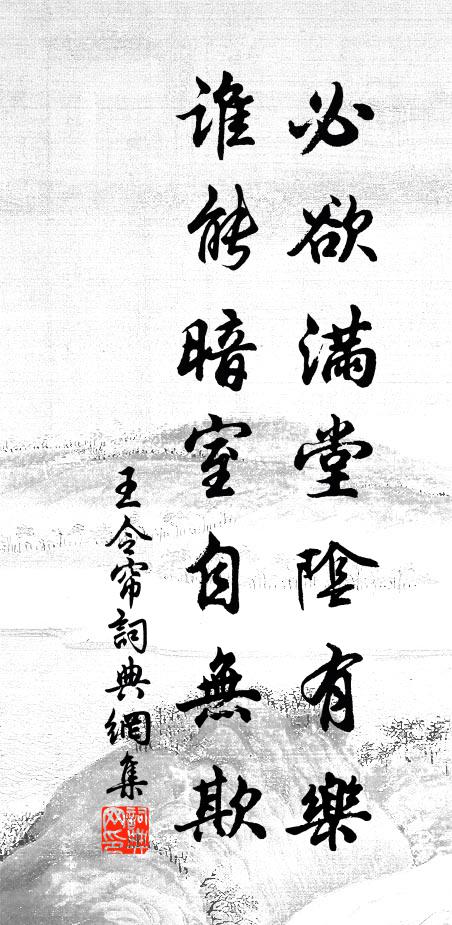 必欲滿堂陰有樂
誰能暗室自無欺
王令帘詞典網集